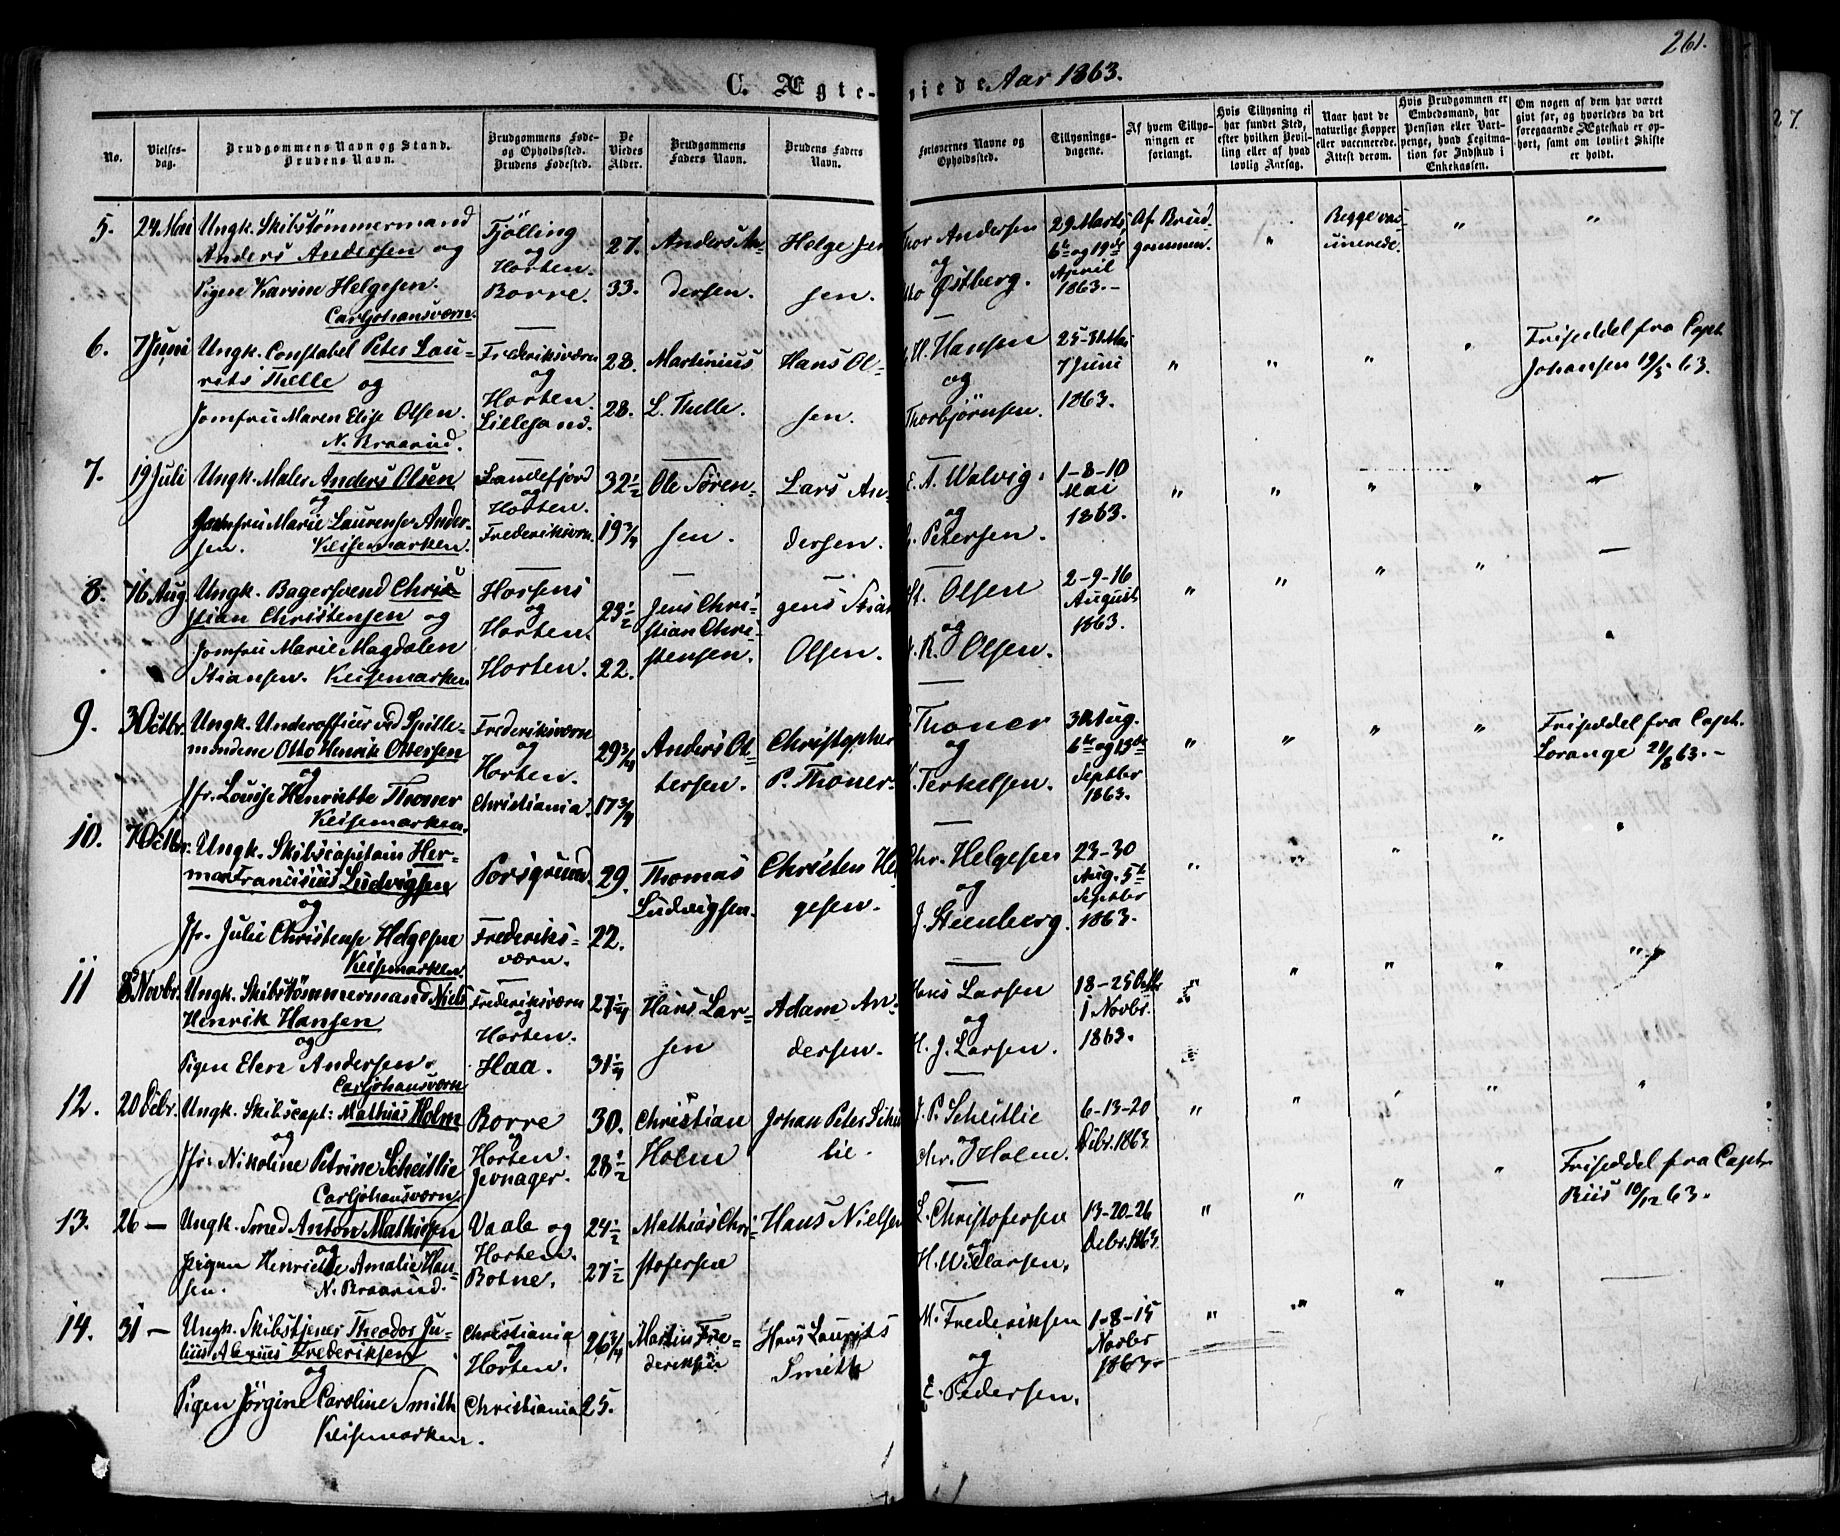 261.
C. Ægteviede Aar 1863.
No.
Vielses-
dag.
Brudgommens Navn og Stand.
Brudens Navn.
Brudgommens Føde-
og Opholdssted.
Brudens Fødested.
De
Viedes
Alder.
Brudgommens
Faders Navn.
Brudens Faders
Navn.
Forlovernes Navne og
Opholdssted.
Tillysnings-
dagene.
Af hvem Tillys-
ningen er
forlangt.
Hvis Tillysning ei
har fundet Sted,
efter hvilken Bevil-
ling eller af hvad
lovlig Aarsag.
Naar havt de
naturlige Kopper
eller vaccinerede.
Attest derom.
Hvis Brudgommen er
Embedsmand, har
Pension eller Vart-
penge, hvad Legitima-
tion for Indskud i
Enkekassen.
Om nogen af dem har været
gift før, og hvorledes da det
foregaaende Ægteskab er op-
hørt, samt om lovligt Skifte
er holdt.
5. 24 Mai Ungk. Skibstømmermand
Anders Andersen og
Pigen Karine Helgesen.
Carljohansværn.
Tjølling
og
Horten.
Borre.
27.
33.
Anders An-
dersen.
Helge Jen
sen.
Thor Andersen
og
Otto Østberg.
29 Marts,
6te og 19de
April
1863.-
Af Brud-
gommen.
" Begge vac-
cinerede. " "
6. 7 Juni Ungk. Constabel Peter Lau-
rits Thelle og
Jomfru Maren Elise Olsen.
N. Braarud.
Frederiksværn
og
Horten.
Lillesand.
28.
28.
Martinius
L. Thelle.
Hans Ol-
sen.
H. Hansen
og
Thorbjørnsen.
25-31 Mai
7 Juni
1863.
" " " "
Friseddel fra Capt.
Johansen 19/5 63.
7. 19 Juli Ungk. Maler Anders Olsen
og
Jomfru Marie Laurense Ander-
sen. Keisemarken.
Sandefjord
og
Horten.
Frederiksværn.
32 1/2
19 3/4
Ole Søren-
sen.
Lars An-
dersen.
E. A. Walvig.
og
Petersen.
1-8-10
Mai
1863.
" " " " —
8. 16 Aug. Ungk. Bagersvend Chri-
stian Christensen og
Jomfru Marie Magdalen
Stiansen. Keisemarken.
Horsens
og
Horten.
Horten.
23 1/2
22.
Jens Chri-
stian Chri-
stensen.
Stian
Olsen.
St. Olsen
og
K. Olsen.
2-9-16
August
1863.
" " " " "
9. 3 Octbr. Ungk. Underofficer ved Spille-
mændene Otto Henrik Ottersen
og
Jfr. Louise Henriette Thoner
Keisemarken.
Frederiksværn
og
Horten.
Christiania.
29 3/4
17 3/4
Anders Ot-
tersen.
Christopher
P. Thoner.
Thoner
og
Terkelsen.
30 Aug.
6te og 13de
Septbr
1863.
" " " "
Friseddel fra Capt.
Lorange 21/8 63.-
10. 7 Octbr. Ungk. Skibscapitain Her-
man Franciscus Ludvigsen
og
Jfr. Julie Christense Helgesen
Keisemarken.
Porsgrund
Frederiks-
værn.
29.
22.
Thomas
Ludvigsen.
Christen Hel
gesen.
Chr. Helgesen
og
J. Steenberg.
23-30
Aug. 5te
Septbr
1863.
" " " " "
11 8 Novbr. Ungk. Skibstømmermand Niels
Henrik Hansen
og
Pigen Elen Andersen.
Carljohansværn
Frederiksværn
og
Horten.
Haa.
27 1/4
31 1/4
Hans Lar-
sen
Adam An-
dersen.
Hans Larsen
og
H. J. Larsen.
18-25 Octbr
1 Novbr.
1863.
" " " " "
12. 20 Debr. Ungk. Skibscapt: Mathias Holm
og
Jfr. Nikoline Petrine Scheitlie
Carljohansværn
Borre
og
Horten.
Jevnager.
30.
28 1/2
Christian
Holm
Johan Peter Schei
lie.
P. Scheitlie
og
Chr. Holm.
6-13-20
Debr. 1863.
" " " " "
13. 26 — Ungk. Smed Anton Mathisen
og
Pigen Henriette Amalie Han-
sen. N. Braarud.
Vaale og
Horten.
Botne.
24 1/2
27 1/2
Mathias Chri-
stofersen
Hans Nielsen
L. Christofersen
og
H. W. Clarsen.
13-20-26
Debr. 1863.
" " " "
Friseddel fra Capt.
Riis 10/12 63.
14. 31 — Ungk. Skibstjener Theodor Ju-
lius Frederiksen
og
Pigen Jørgine Caroline Smith
Keisemarken.
Christiania
og
Horten.
Christiania
26 3/4
25.
Martin Fre-
deriksen
Hans Laurits
Smith
M. Frederiksen
og
E. Pedersen.
1-8-15
Novbr
1863.
" " " " —
27.